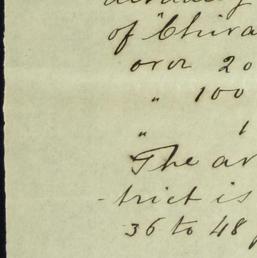 of "Chira
over 20
" 100
" 1
The ar
-trict is
36 to 48